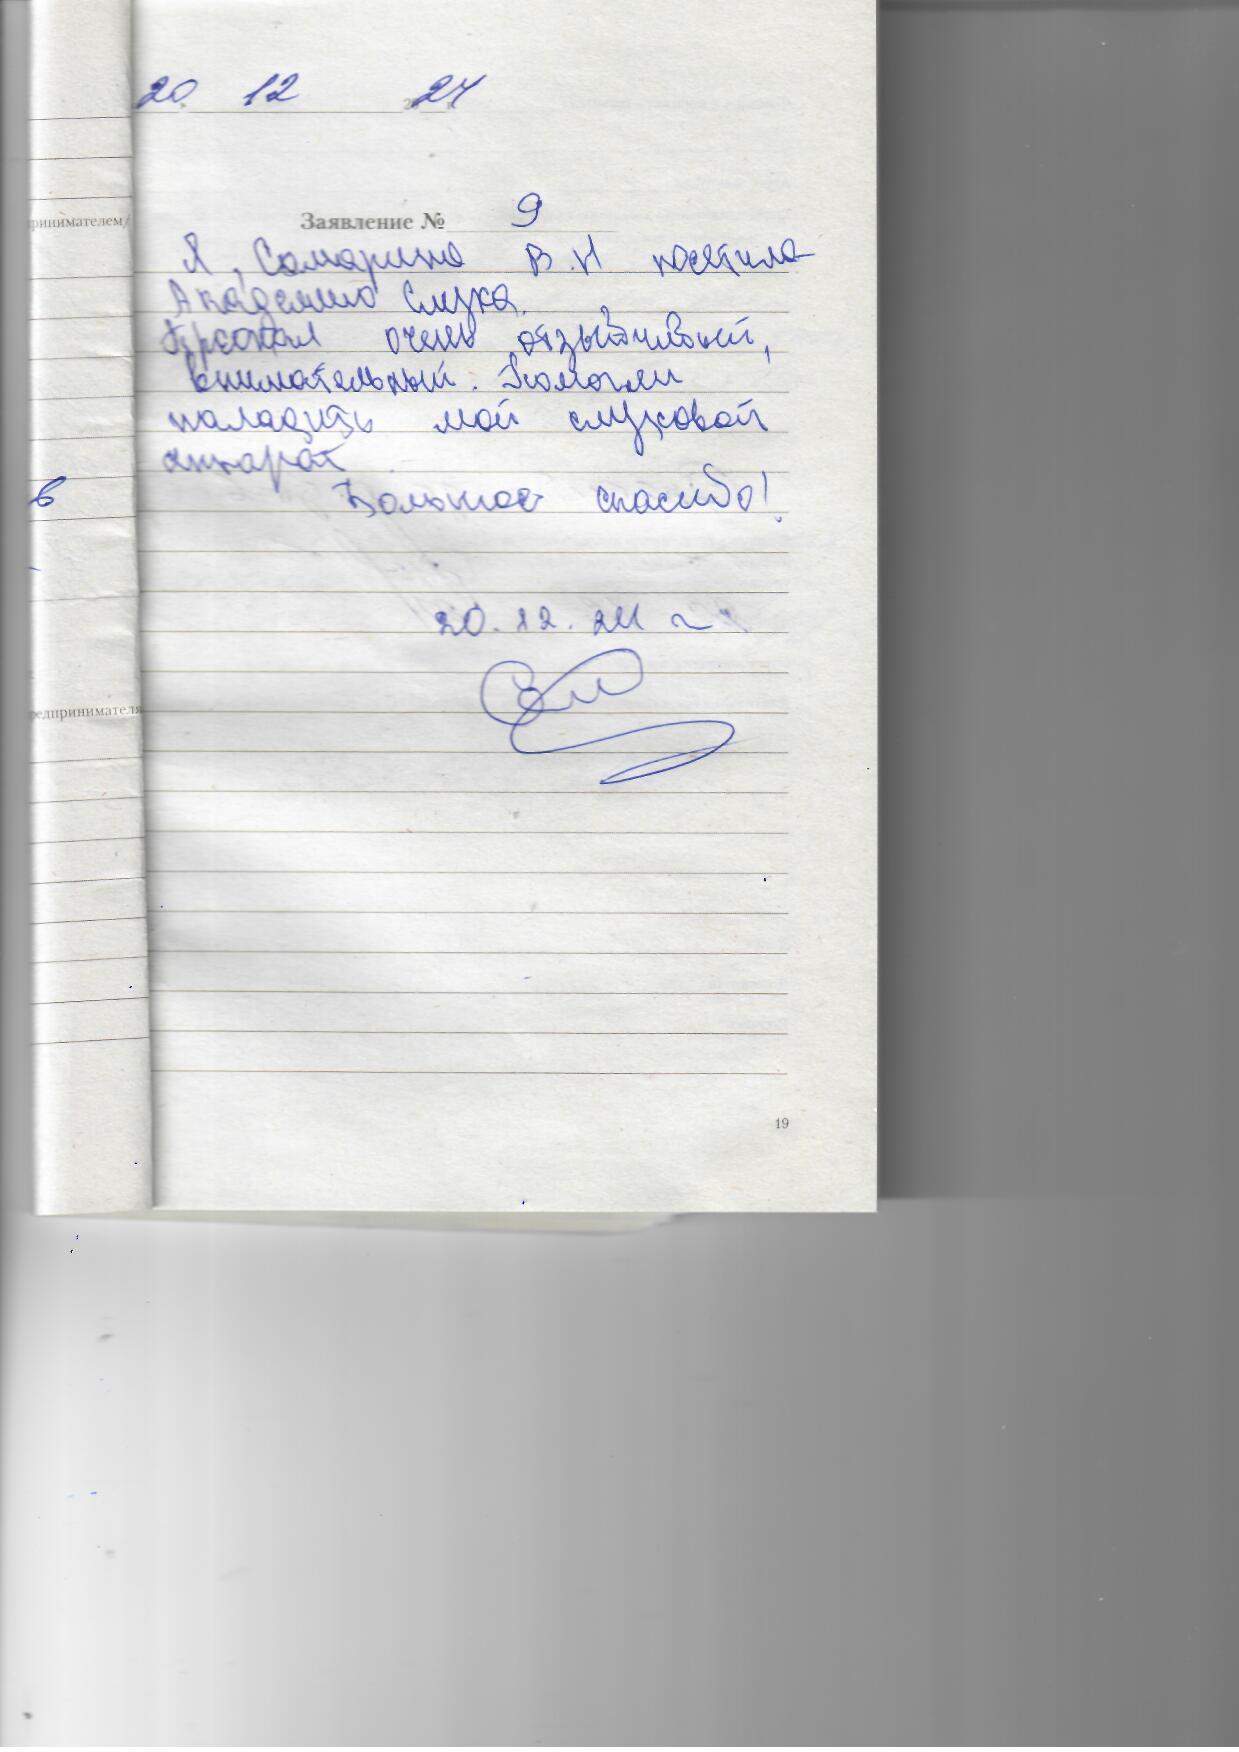 20 12 2024
Заявление № 9
Я, Самарина В.И посетила
Академию Слуха.
Персонал очень отзывчивый,
внимательный. Помогли
наладить мой слуховой
аппарат.
Большое спасибо!
20.12.24 г
ринимателем/
в
редпринимателя
19